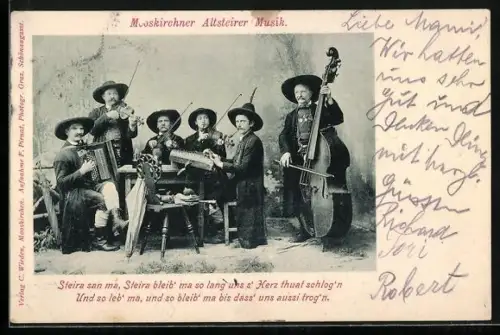 Mooskirchner Altsteirer Musik.
Verlag C. Wirden, Mooskirchen. Aufnahme F. Pernat, Photogr. Graz, Schönaugasse.
Liebe Mami,
Wir hatten
uns sehr
gut und
danken
mit herzl.
Grüssen
Richard
Robert
'Steira san ma, Steira bleib' ma so lang uns s' Herz thuat schlog'n
Und so leb' ma, und so bleib' ma bis dass' uns aussi trog'n.